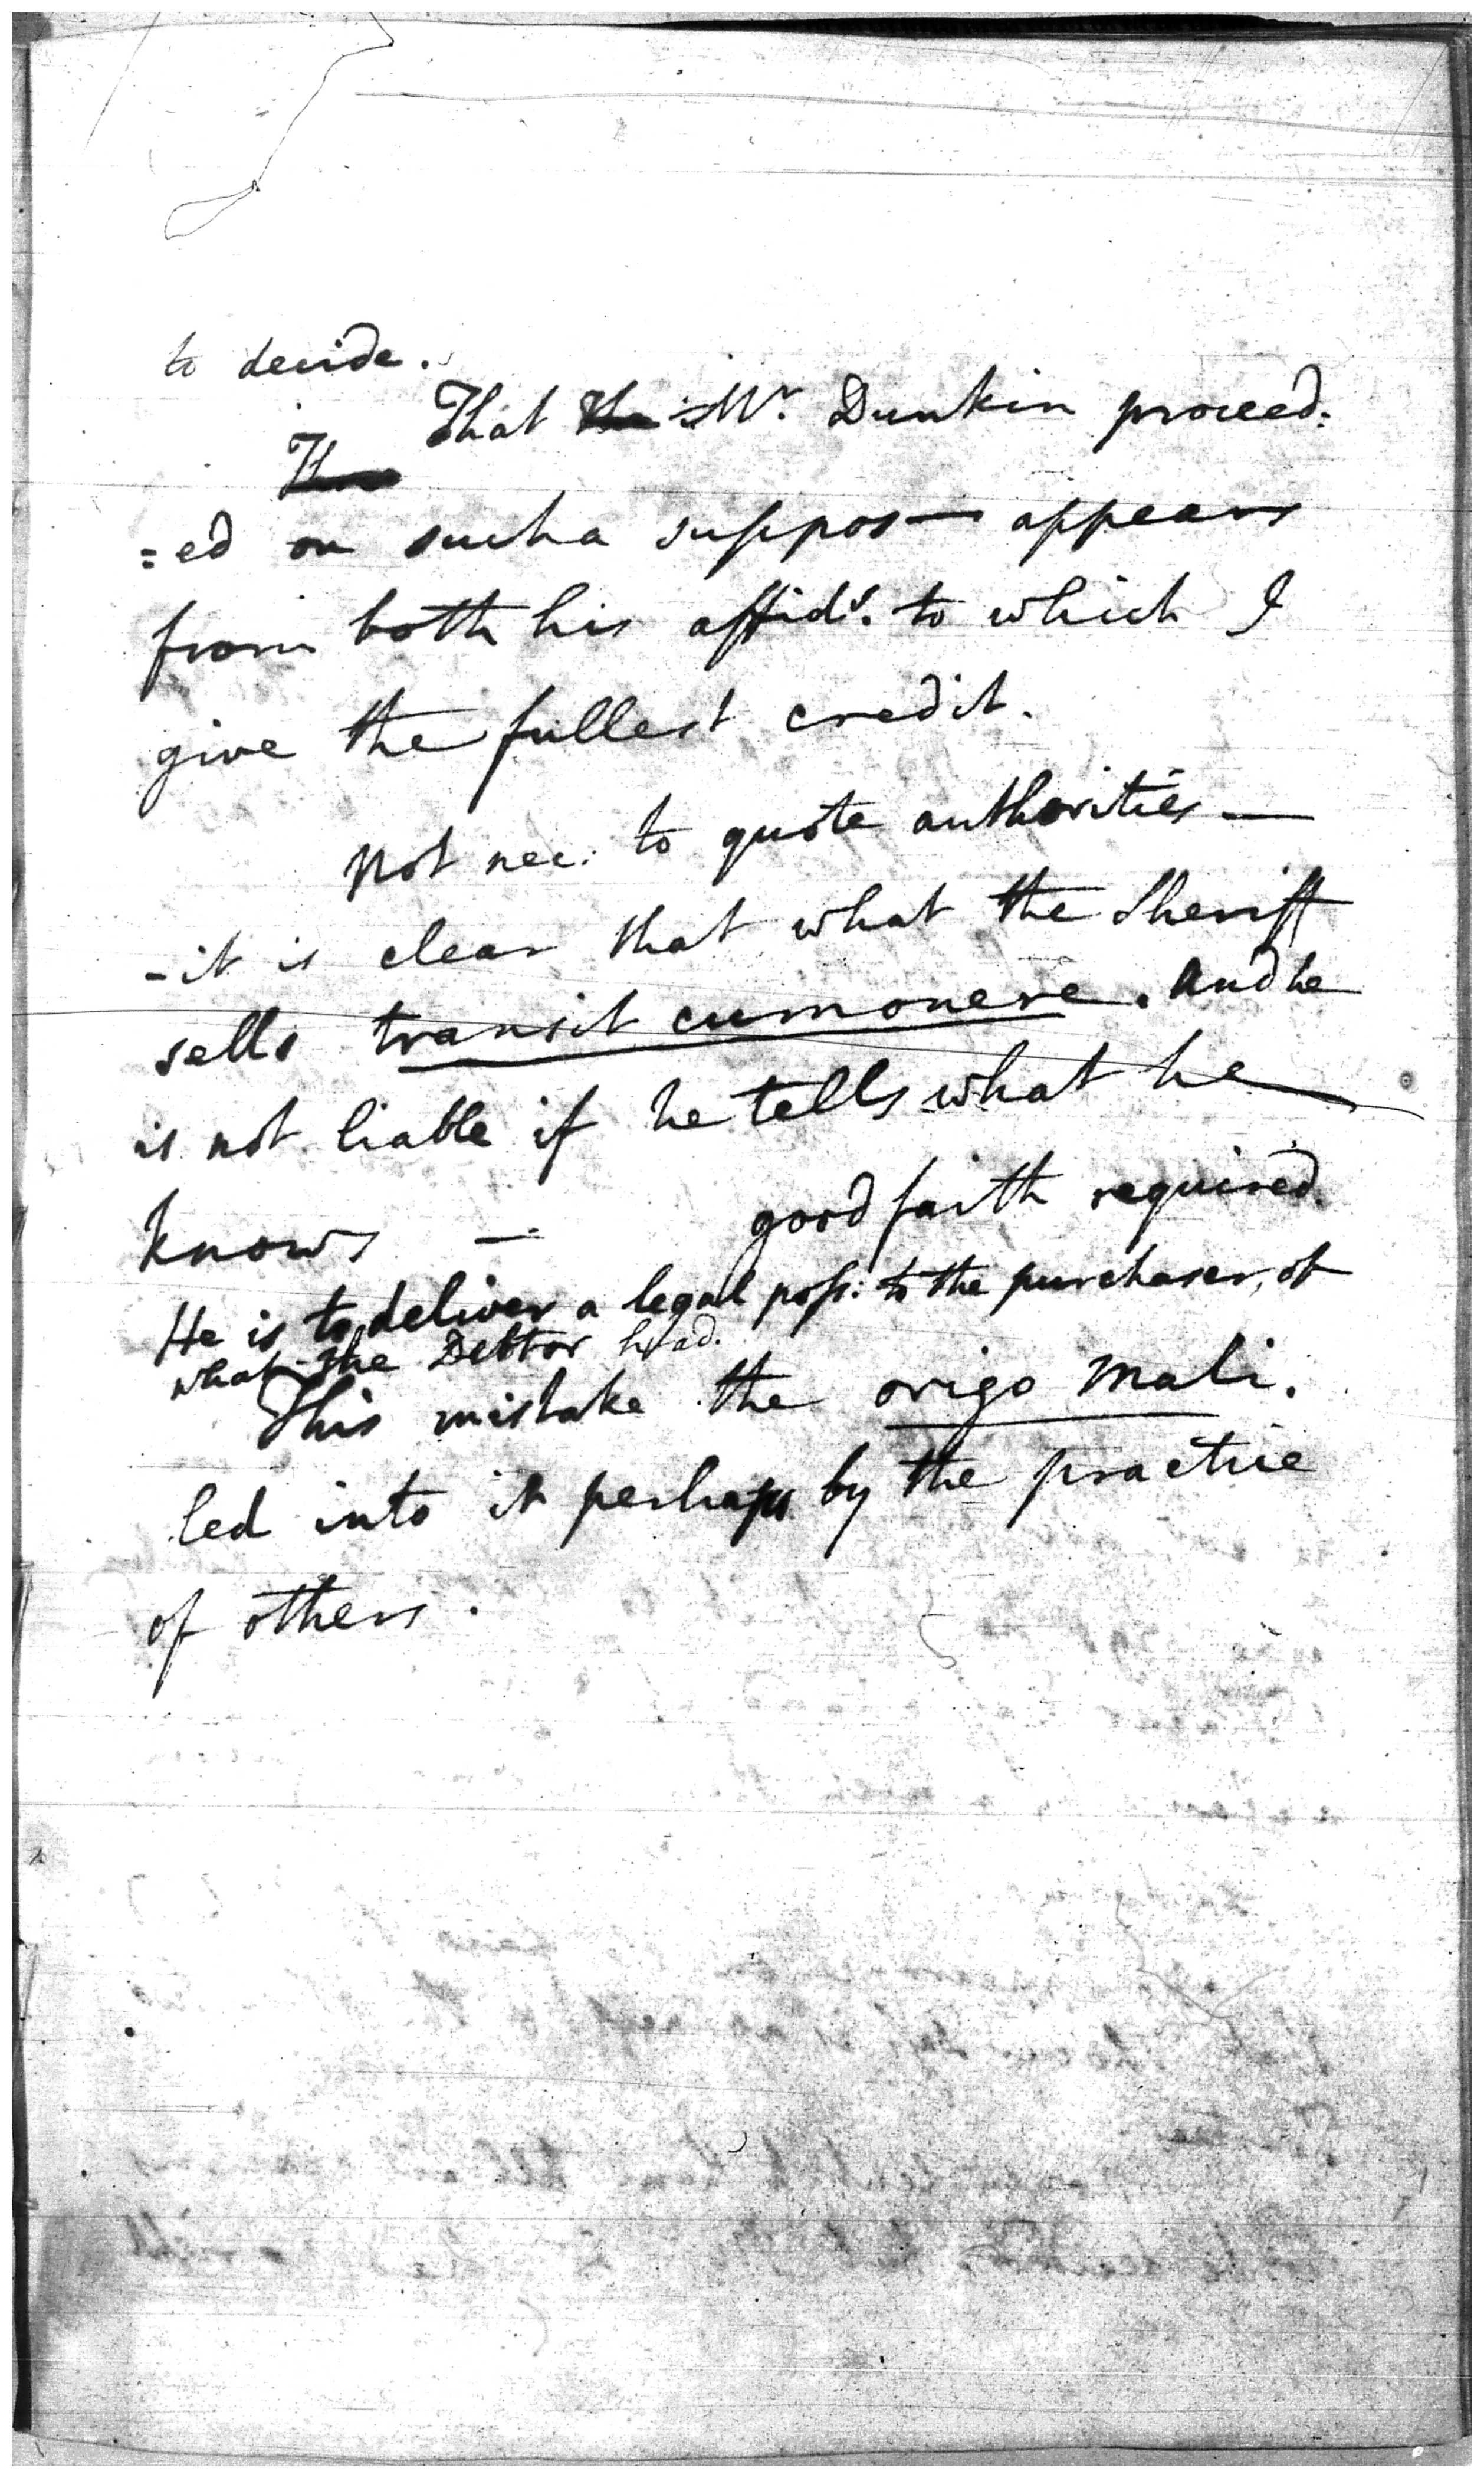 to decide.
That Mr. Dunkin proceed:
=ed on such a suppos— appears
from both his affidts. to which I
give the fullest credit.
Not nec: to quote authorities —
- it is clear that what the Sheriff
sells transit cum onere. And he
is not liable if he tells what he
knows — good faith required.
He is to deliver a legal poss: to the purchaser, of
what the Debtor had.
This mistake the origo mali.
led into it perhaps by the practice
of others.